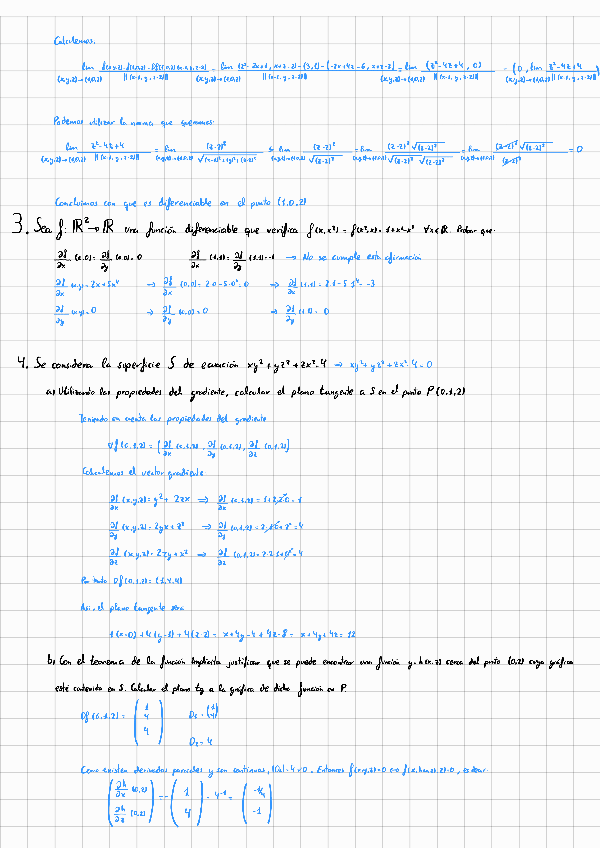 Calculemos:
Podemos utilizar la norma que queramos:
Concluimos con que es diferenciable en el punto (1,0,2)
3. Sea f: ℝ² → ℝ una función diferenciable que verifica f(x,x²) = f(x²,x) = 1+x²-x⁵ ∀x∈ℝ. Probar que:
∂f/∂x (0,0) = ∂f/∂y (0,0) = 0 ∂f/∂x (1,1) = ∂f/∂y (1,1) = -1 → No se cumple esta afirmación
∂f/∂x (x,y) = 2x+5x⁴ → ∂f/∂x (0,0) = 2·0-5·0⁴ = 0 → ∂f/∂x (1,1) = 2·1-5·1⁴ = -3
∂f/∂y (x,y) = 0 → ∂f/∂y (0,0) = 0 → ∂f/∂y (1,1) = 0
4. Se considera la superficie S de ecuación xy²+yz²+zx²=4 → xy²+yz²+zx²-4=0
a) Utilizando las propiedades del gradiente, calcular el plano tangente a S en el punto P(0,1,2)
Teniendo en cuenta las propiedades del gradiente
∇f(0,1,2) = [∂f/∂x (0,1,2), ∂f/∂y (0,1,2), ∂f/∂z (0,1,2)]
Calculemos el vector gradiente
∂f/∂x (x,y,z) = y²+2zx ⇒ ∂f/∂x (0,1,2) = 1+2·2·0 = 1
∂f/∂y (x,y,z) = 2yx+z² ⇒ ∂f/∂y (0,1,2) = 2·1·0+2² = 4
∂f/∂z (x,y,z) = 2zy+x² ⇒ ∂f/∂z (0,1,2) = 2·2·1+0² = 4
Por tanto Df(0,1,2) = (1,4,4)
Así, el plano tangente será
1(x-0)+4(y-1)+4(z-2) = x+4y-4+4z-8 = x+4y+4z = 12
b) Con el teorema de la función implícita justificar que se puede encontrar una función y=h(x,z) cerca del punto (0,2) cuya gráfica
esté contenida en S. Calcular el plano tg a la gráfica de dicha función en P.
Df(0,1,2) = (1 4 4) D₁ = (1 4)
D₂ = 4
Como existen derivadas parciales y son continuas, |D₂| = 4 ≠ 0. Entonces f(x,y,z)=0 ⇔ f(x,h(x,z),z)=0, es decir
(∂h/∂x (0,2) ∂h/∂z (0,2)) = -(1 4) · 4⁻¹ = (-1/4 -1)